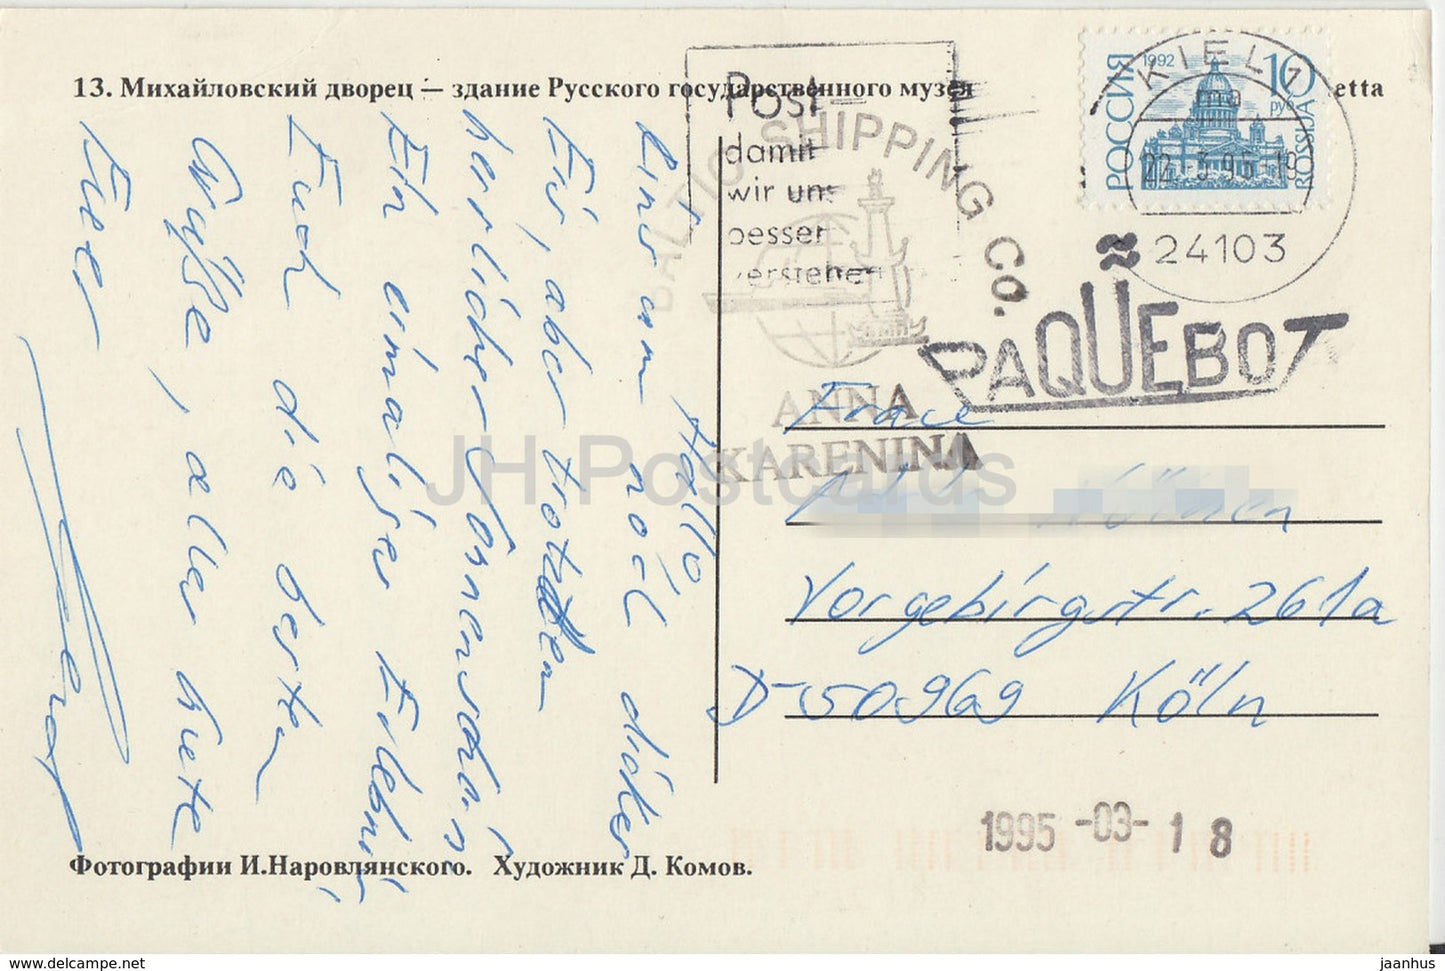 13. Михайловский дворец — здание Русского государственного музея
etta
1992
РОССИЯ
10
руб
ROSSIJA
KIEL 1
ma
22.-3.95-19
24103
Post—
damit
wir uns
besser
verstehen
BALTIC SHIPPING CO.
ANNA
KARENINA
PAQUEBOT
Hallo
rund um noch dickes
Eis, aber trotzdem
herrlicher Sonnenschein
Ein einmaliges Erlebnis,
Euch die besten
Grüße, alles Gute
Euer
Vorgebirgstr. 261a
D-50969 Köln
1995 -03- 1 8
Фотографии И.Наровлянского. Художник Д. Комов.
JH Postcards
www.delcampe.net
jaanhus